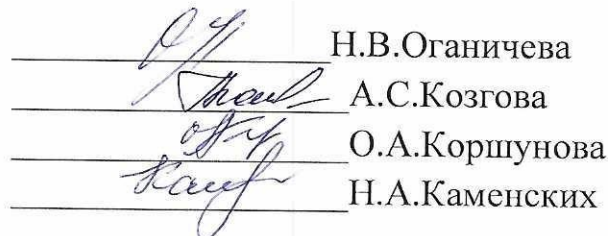 Н.В.Оганичева
А.С.Козгова
О.А.Коршунова
Н.А.Каменских